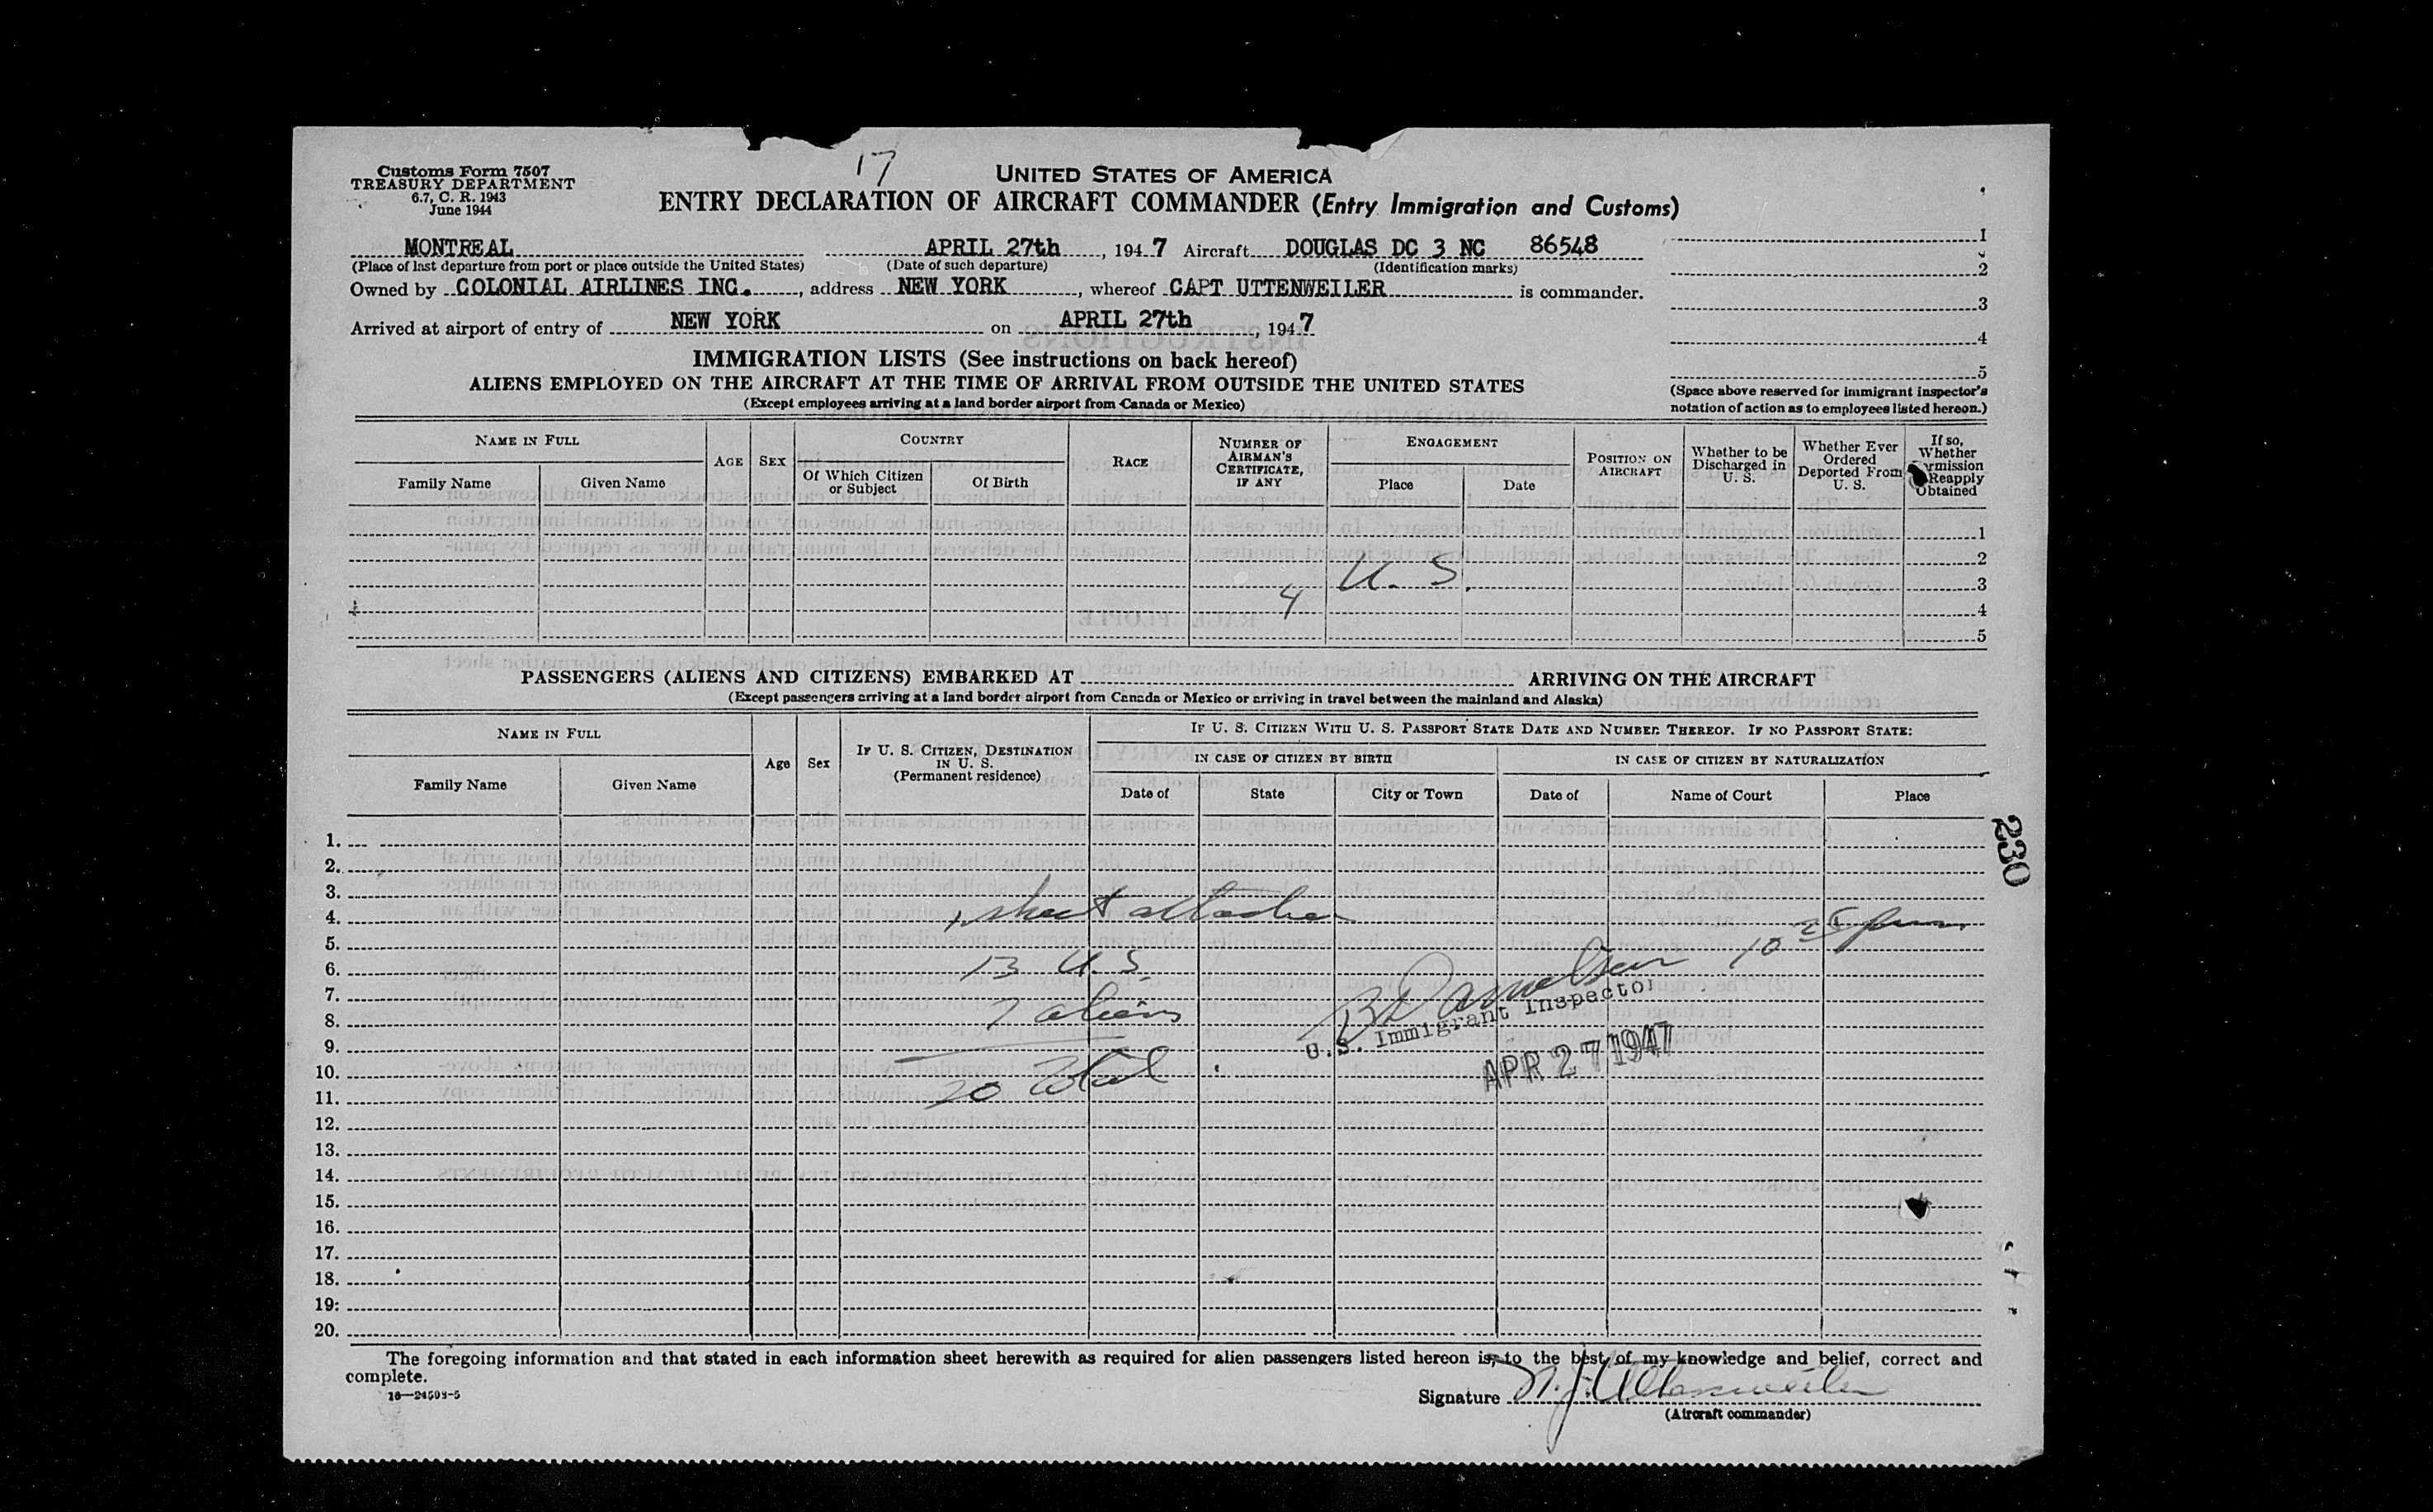 Customs Form 7507
TREASURY DEPARTMENT
6.7, C. R. 1943
June 1944
17
UNITED STATES OF AMERICA
ENTRY DECLARATION OF AIRCRAFT COMMANDER (Entry Immigration and Customs)
MONTREAL APRIL 27th, 1947 Aircraft DOUGLAS DC 3 NC 86548
(Place of last departure from port or place outside the United States) (Date of such departure) (Identification marks)
Owned by COLONIAL AIRLINES INC., address NEW YORK, whereof CAPT UTTENWEILER is commander.
Arrived at airport of entry of NEW YORK on APRIL 27th, 1947
1
2
3
4
5
(Space above reserved for immigrant inspector's notation of action as to employees listed hereon.)
IMMIGRATION LISTS (See instructions on back hereof)
ALIENS EMPLOYED ON THE AIRCRAFT AT THE TIME OF ARRIVAL FROM OUTSIDE THE UNITED STATES
(Except employees arriving at a land border airport from Canada or Mexico)
NAME IN FULL
Family Name
Given Name
AGE
SEX
COUNTRY
Of Which Citizen or Subject
Of Birth
RACE
NUMBER OF AIRMAN'S CERTIFICATE, IF ANY
ENGAGEMENT
Place
Date
POSITION ON AIRCRAFT
Whether to be Discharged in U. S.
Whether Ever Ordered Deported From U. S.
If so, Whether Reapply Obtained
1
2
3
4
5
4 U. S.
PASSENGERS (ALIENS AND CITIZENS) EMBARKED AT ARRIVING ON THE AIRCRAFT
(Except passengers arriving at a land border airport from Canada or Mexico or arriving in travel between the mainland and Alaska)
NAME IN FULL
Family Name
Given Name
Age
Sex
IF U. S. CITIZEN, DESTINATION IN U. S.
(Permanent residence)
IF U. S. CITIZEN WITH U. S. PASSPORT STATE DATE AND NUMBER THEREOF. IF NO PASSPORT STATE:
IN CASE OF CITIZEN BY BIRTH
Date of
State
City or Town
IN CASE OF CITIZEN BY NATURALIZATION
Date of
Name of Court
Place
230
1.
2.
3.
4. 1 sheet attached
5.
6. 13 U. S.
7.
8. 7 aliens
9.
10.
11. 20 Total
12.
13.
14.
15.
16.
17.
18.
19.
20.
U.S. Immigrant Inspector
APR 27 1947
The foregoing information and that stated in each information sheet herewith as required for alien passengers listed hereon is, to the best of my knowledge and belief, correct and
complete.
16—24593-5
Signature
(Aircraft commander)